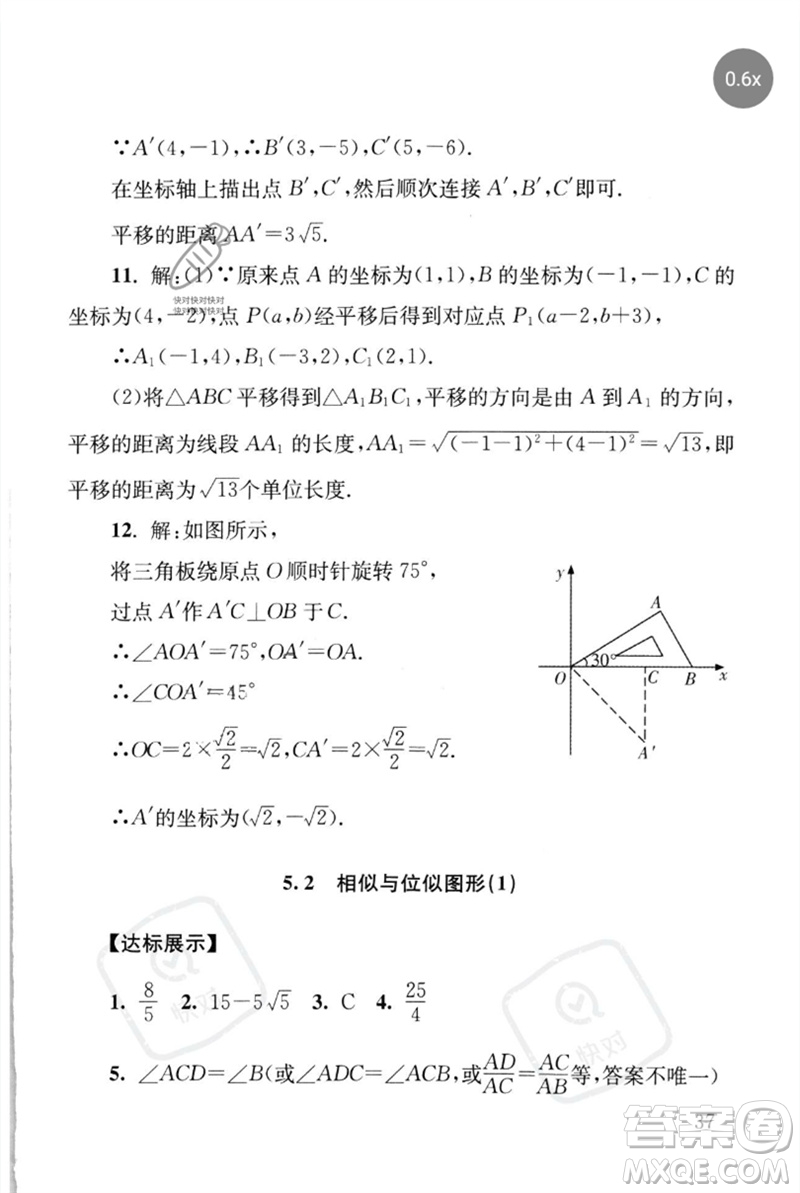 0.6x
∵A′(4,-1),∴B′(3,-5),C′(5,-6).
在坐标轴上描出点 B′,C′,然后顺次连接 A′,B′,C′即可.
平移的距离 AA′=3√5.
11. 解:(1)∵原来点 A 的坐标为(1,1),B 的坐标为(-1,-1),C 的
快对快对快对
坐标为(4,-2),点 P(a,b)经平移后得到对应点 P₁(a-2,b+3),
快对快对快对
∴A₁(-1,4),B₁(-3,2),C₁(2,1).
(2)将△ABC 平移得到△A₁B₁C₁,平移的方向是由 A 到 A₁ 的方向,
平移的距离为线段 AA₁ 的长度,AA₁=√((-1-1)²+(4-1)²)=√13,即
平移的距离为√13个单位长度.
12. 解:如图所示,
将三角板绕原点 O 顺时针旋转 75°,
过点 A′作 A′C⊥OB 于 C.
∴∠AOA′=75°,OA′=OA.
∴∠COA′=45°
∴OC=2×√2/2=√2,CA′=2×√2/2=√2.
∴A′的坐标为(√2,-√2).
y
A
30°
O
C
B
x
A′
5.2 相似与位似图形(1)
【达标展示】
1. 8/5 2. 15-5√5 3. C 4. 25/4
快对
快对
5. ∠ACD=∠B(或∠ADC=∠ACB,或AD/AC=AC/AB等,答案不唯一)
37
答案圈
MXQE.COM